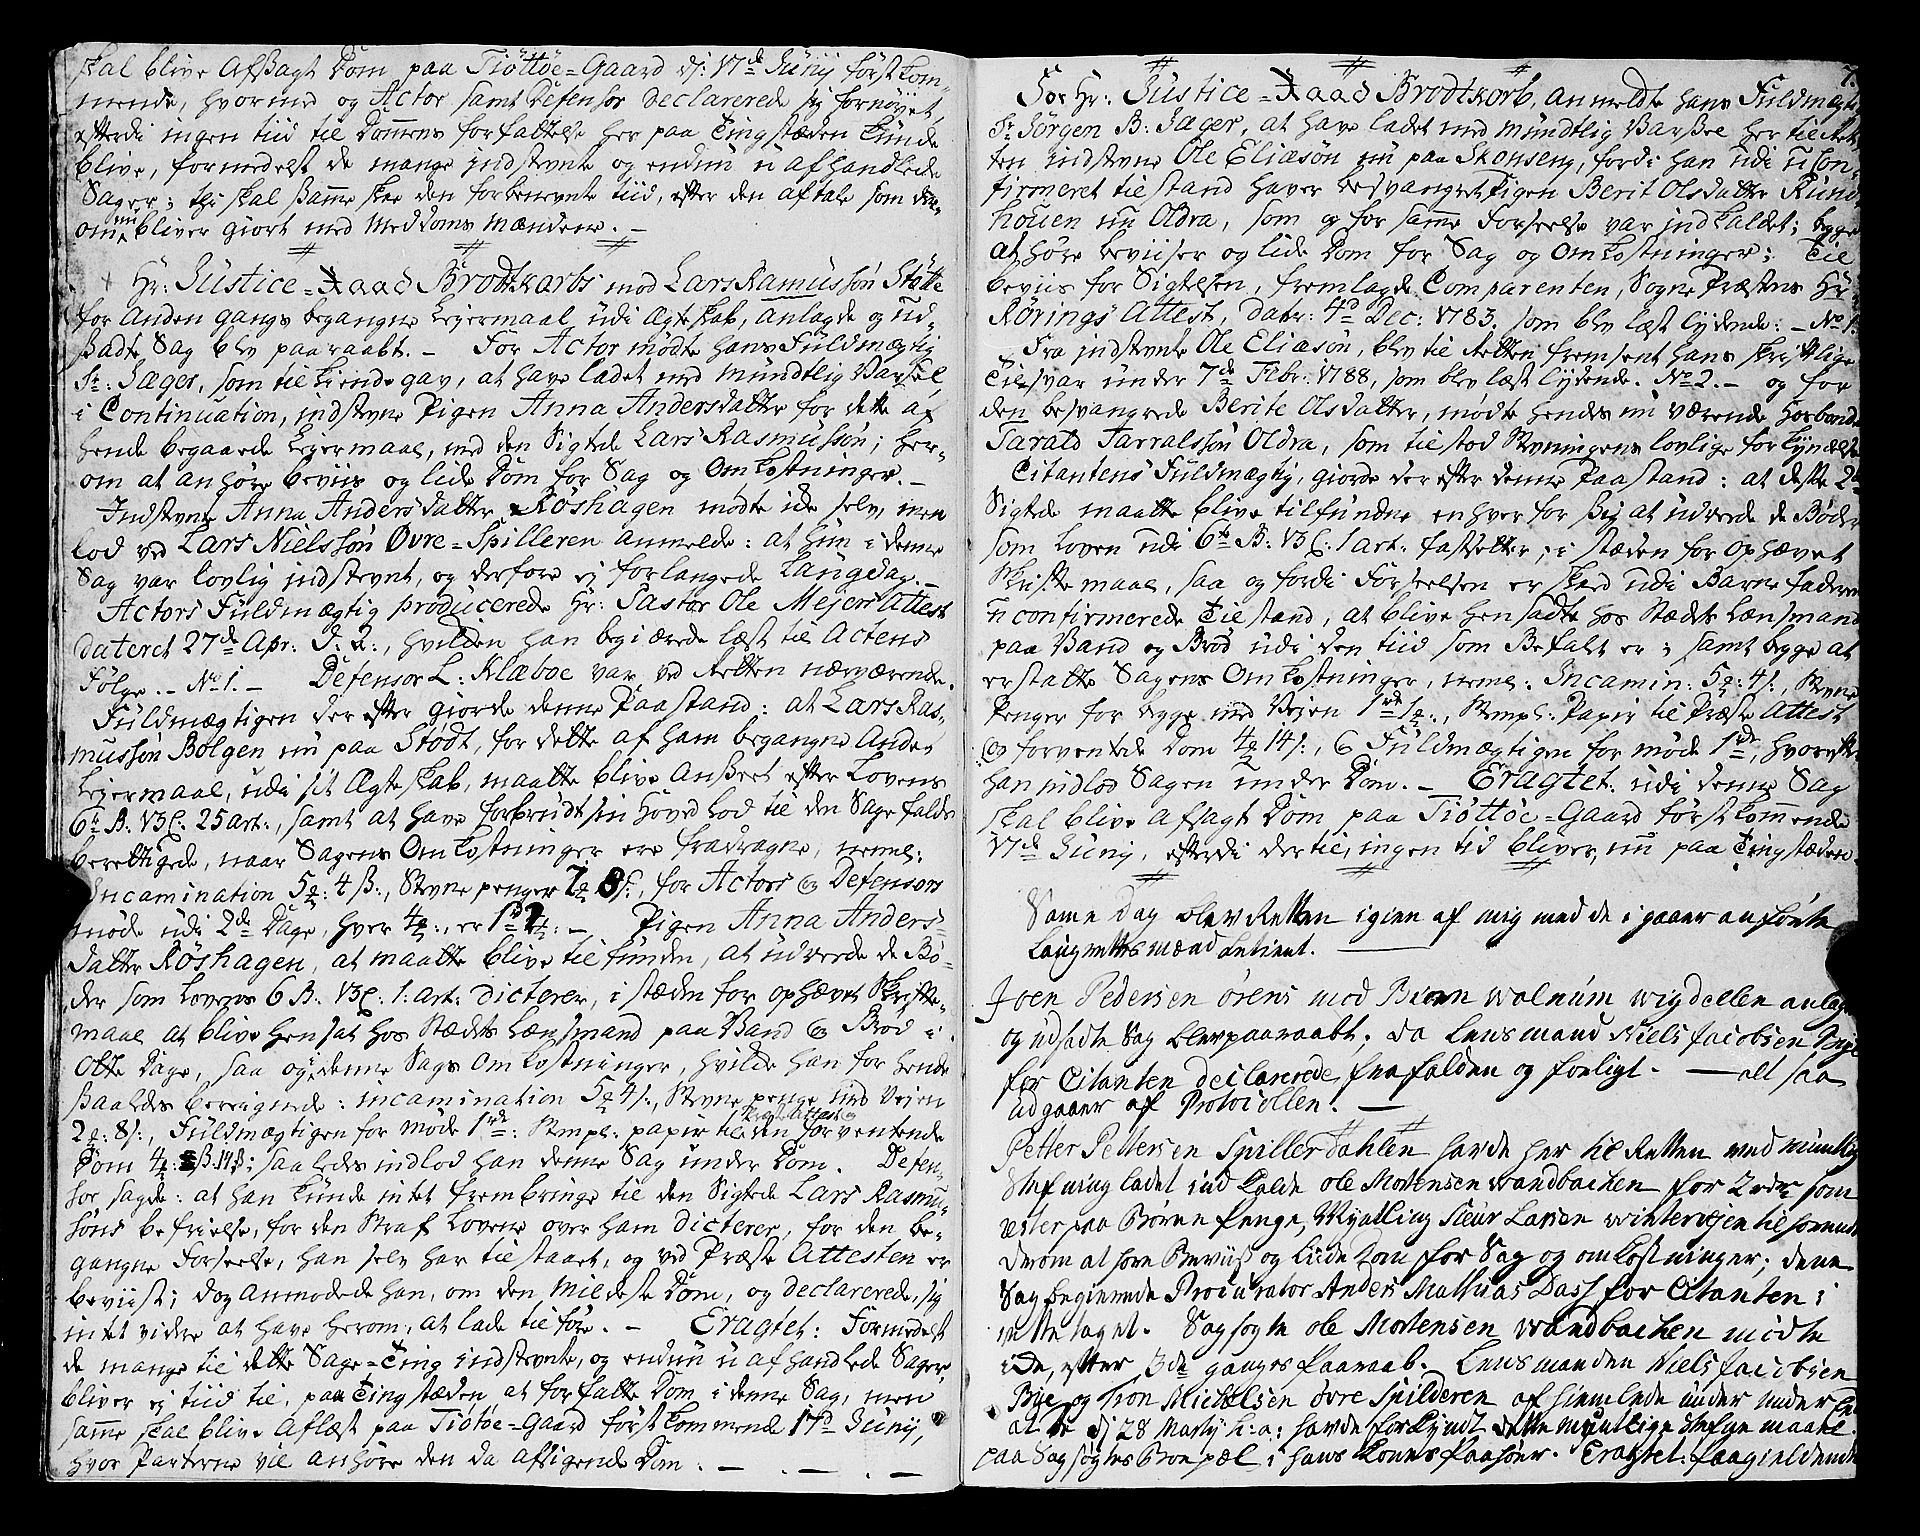 skal blive afsagt Dom paa Tiøttøe=Gaard d: 17de Junij først kom-
mende, hvormed og Actor samt Defensor declarerede sig fornøyet,
efterdi ingen tiid til Dommens forfattelse her paa Tingstæden kunde
blive, formedelst de mange indstevnte og endnu u afhandlede
Sager; thi skal samme skee den forbenevnte tiid, efter den aftale som der-
om nu bliver giort med Meddoms Mændene. -
Hr: Justice=Raad Brodtkorbs mod Lars Ramussøn Støtte
for Anden gangs begangne Leyermaal udi Ægteskab, anlagde og ud-
sadte Sag blev paaraabt. - For Actor mødte hans Fuldmægtig
Sr: Jæger, som tilkiende gav, at have ladet med mundtlig Varsel
i Continuation, indstevne Pigen Anna Andersdatter for dette af
hende begaaede Leyermaal, med den Sigtede Lars Rasmussøn; her-
om at anhøre beviis og lide Dom for Sag og Omkostninger. -
Indstevnte Anna Andersdatter Røshagen mødte ide selv, men
lod ved Lars Nielssøn Øvre=Spilleren anmelde: at hun i denne
Sag var lovlig indstevnt, og derfore ej forlangede Langdag. -
Actors Fuldmægtig producerede Hr: Pastor Ole Mejers Attest
dateret 27de Apr: d. A:, hvilken han begiærede læst til Actens
Følge. - No 1. - Defensor L: Klæboe var ved Retten nærværende.
Fuldmægtigen der efter giorde denne Paastand: at Lars Ras-
mussøn Bolgen nu paa Stødt, for dette af ham begangne Anden
Leyermaal, udi sit Ægteskab, maatte blive Anseet efter Lovens
6te B: 13 C: 25 art:, samt at have forbrudt sin Hoved Lod til den Sagefalds
berettigede, naar Sagens Omkostninger ere fradragne, neml:
Incamination 5 4 ß:, Stevne penger 7 8 ß:, for Actors og Defensors
møde udi 2de Dage, hver 4 :, er 1 2 : - Pigen Anna Anders-
datter Røshagen, at maatte blive tilfunden, at udrede de Bø-
der som Lovens 6 B: 13 C: 1. art: dicterer, i stæden for ophævet Skrifte-
maal at blive hensat hos Stædets Lænsmand paa Vand og Brød i
Otte Dage, saa og denne Sags Omkostninger, hvilke han for hende
saaledes beregnede: incamination 5 4 ß:, Stevne penge med Vejen
2 : 8 ß:, Fuldmægtigen for møde 1rd: Stempl: papir til Præste Attest og den forventende
Dom 4 : ß: 14 ß; saaledes indlod han denne Sag under Dom. Defen-
sor sagde: at han kunde intet frembringe til den Sigtede Lars Rasmu-
søns befrielse, for den Straf Lovene over ham dicterer, for den be-
gangne Forseelse, han selv har tilstaaet, og ved Præste Attesten er
beviist; dog anmodede han, om den mildeste Dom, og declarerede, sig
intet videre at have herom, at lade tilføre. - Eragtet: Formedelst
de mange til dette Sage=Ting indstevnte, og endnu u afhandlede Sager,
bliver ej tiid til, paa Tingstæden, at forfatte Dom, i denne Sag, men
samme skal blive Aflæst paa Tiøtøe=Gaard først kommende 17de Junij,
hvor Parterne vil anhøre den da afsigende Dom. -
7.
For Hr: Justice=Raad Brodtkorb, anmeldte hans Fuldmægtig
Sr. Jørgen B: Jæger, at have ladet med mundtlig Varsel her til Ret-
ten indstevne Ole Eliasøn nu paa Skonseng, fordi han udi u con-
firmeret tilstand haver besvangret Pigen Berit Olsdatter Rund-
houen nu Oldra, som og for samme Forseelse var indkaldet; begge
at høre beviiser og lide Dom for Sag og Omkostninger; Til
beviis for Sigtelsen, fremlagde Comparenten, Sogne Præstens Hr:
Rørings Attest, dater: 4de Dec: 1783. som blev læst lydende: - No 1.
Fra indstevnte Ole Eliasøn, blev til Retten fremsent hans skriftlige
Tilsvar under 7de Febr: 1788, som blev læst lydende. No 2. - og for
den besvangrede Berite Olsdatter, mødte hendes nu værende Hosbonde
Tarald Tarralssøn Oldra, som tilstod Stevningens lovlige forkyndelse
Citantens Fuldmægtig, giorde der efter denne Paastand: at disse 2de
Sigtede maatte blive tilfundne enhver for sig at udrede de Bøder
som Loven udi 6te B: 13 C: 1 art: fastsetter, i stæden for ophævet
Skriftemaal, saa og fordi Forseelsen er skeed udi Barne faderens
u confirmerede Tilstand, at blive hensadte hos Stædets Lænsmand
paa Vand og Brød udi den tiid som Befalt er; samt begge at
erstatte Sagens Omkostninger, neml: Incamin: 5 4 ß:, Stevne
Penger for begge med Vejen 1rd :, Stempl: Papir til Præste Attest
og forventede Dom 4 14 ß:, og Fuldmægtigen for møde 1rd, hvorefter
han indlod Sagen under Dom. - Eragtet: udi denne Sag
skal blive afsagt Dom paa Tiøttøe=Gaard først kommende
17de Junij, efterdi dertil, ingen tid bliver, nu paa Tingstæden.
Same Dag blev Retten igien af mig med de i gaar anførte
Laugrettesmænd betient.
Joen Pedersen Ørens mod Biørn Walnum Wigdellen anlagte
og udsadte Sag blev paaraabt; da Lensmand Niels Jacobsen Bye
for Citanten declarerede frafalden og forligt. - alt saa
udgaaer af Protocollen. -
Petter Pettersen Spillerdahlen hafde her til Retten med muntlig
Stefning ladet ind kalde ole Mortensen wandbacken for 2 rdr som
rester paa Børne Penge, Myndling Sieur Larsen wintervejen tilhørende
derom at høre Beviis og liide Dom for Sag og omkostninger; dene
Sag begierede Procurator Anders Mathias Dass for Citanten i
rette taget. Sagsøgte ole Mortensen wandbacken mødte
ide, efter 3de ganges Paaraab. Lensmanden Niels Jacobsen
Bye og Tron Michelsen øvre Spilderen af hiemlede under
at de d: 28 Martij h: a: hafde forkyndt dette mundtlige stefne maal
paa Sagsøgtes Boepæl, i hans Kones Paahør. Eragtet: Paagieldende